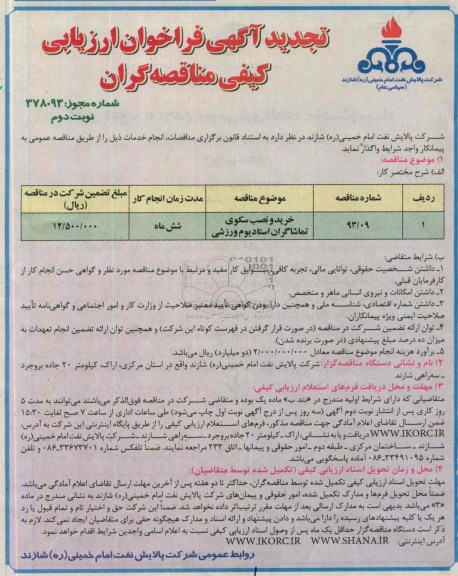 تجدید آگهی فراخوان ارزیابی
کیفی مناقصه گران
شرکت پالایش نفت امام خمینی (ره) شازند
(سهامی عام)
شماره مجوز: ۳۷۸۰۹۳
نوبت دوم
شرکت پالایش نفت امام خمینی(ره) شازند در نظر دارد به استناد قانون برگزاری مناقصات، انجام خدمات ذیل را از طریق مناقصه عمومی به
پیمانکار واجد شرایط واگذار نماید.
۱) موضوع مناقصه:
الف) شرح مختصر کار:
ردیف شماره مناقصه موضوع مناقصه مدت زمان انجام کار مبلغ تضمین شرکت در مناقصه (ریال)
۱ ۹۳/۰۹ خرید و نصب سکوی تماشاگران استادیوم ورزشی شش ماه ۱۲/۵۰۰/۰۰۰
ب) شرایط متقاضی:
۱ـ داشتن شخصیت حقوقی، توانایی مالی، تجربه کافی، سوابق کار مفید و مرتبط با موضوع مناقصه مورد نظر و گواهی حسن انجام کار از
کارفرمایان قبلی.
۲ـ داشتن امکانات و نیروی انسانی ماهر و متخصص.
۳ـ داشتن شماره اقتصادی، شناسه ملی و همچنین دارا بودن گواهی تأیید معتبر صلاحیت از وزارت کار و امور اجتماعی و گواهی‌نامه تأیید
صلاحیت ایمنی ویژه پیمانکاران.
۴ـ توان ارائه تضمین شرکت در مناقصه (در صورت قرار گرفتن در فهرست کوتاه این شرکت) و همچنین توان ارائه تضمین انجام تعهدات به
میزان ده درصد مبلغ پیشنهادی (در صورت برنده شدن).
۵ـ برآورد هزینه انجام موضوع مناقصه معادل ۲/۰۰۰/۰۰۰/۰۰۰ (دو میلیارد) ریال می‌باشد.
۲) نام و نشانی دستگاه مناقصه‌گزار: شرکت پالایش نفت امام خمینی(ره) شازند واقع در استان مرکزی، اراک، کیلومتر ۲۰ جاده بروجرد
ـ سه‌راهی شازند
۳) مهلت و محل دریافت فرم‌های استعلام ارزیابی کیفی:
متقاضیانی که دارای شرایط اولیه مندرج در «بند ب» ماده یک بوده و متقاضی شرکت در مناقصه فوق‌الذکر می‌باشند می‌توانند به مدت ۵
روز کاری پس از انتشار نوبت دوم آگهی (سه روز پس از درج آگهی نوبت اول چاپ می‌شود) طی ساعات اداری از ساعت ۷ صبح لغایت ۱۵:۳۰
ضمن ارسال تقاضای اعلام آمادگی جهت مناقصه مذکور، فرم‌های استعلام ارزیابی کیفی را از طریق پایگاه اینترنتی این شرکت به آدرس:
WWW.IKORC.IR دریافت و یا به نشانی: اراک ـ کیلومتر ۲۰ جاده بروجرد ـ سه‌راهی شازند ـ شرکت پالایش نفت امام خمینی(ره)
شازند ـ ساختمان مرکزی ـ طبقه دوم ـ امور حقوقی و پیمانها ـ اتاق ۲۳۳ مراجعه نمایند. ضمناً تلفکس شماره ۳۳۶۷۳۷۰۱ـ۰۸۶ و تلفن
شماره ۳۳۴۹۱۰۹۵ـ۰۸۶ آماده پاسخگویی می‌باشد.
۴) محل و زمان تحویل اسناد ارزیابی کیفی (تکمیل شده توسط متقاضیان):
مهلت تحویل اسناد ارزیابی کیفی تکمیل شده توسط مناقصه‌گران، حداکثر تا دو هفته پس از آخرین مهلت ارسال تقاضای اعلام آمادگی می‌باشد.
ضمناً محل تحویل فرم‌ها و مدارک تکمیل شده، امور حقوقی و پیمان‌های شرکت پالایش نفت امام خمینی(ره) شازند به نشانی مندرج در ماده
«۳» می‌باشد. بدیهی است به مدارک ارسالی بعد از مهلت مقرر ترتیب‌اثر داده نخواهد شد. ضمناً این شرکت حق و اختیار تام و تمام قبول یا رد
هر یک یا کلیه پیشنهادهای رسیده را دارا می‌باشد و دادن پیشنهاد و ارائه اسناد و مدارک هیچگونه حقی برای متقاضیان ایجاد نمی‌کند. لازم به
ذکر است دستگاه مناقصه‌گزار حداقل یک ماه پس از وصول اسناد ارزیابی کیفی نسبت به اعلام اسامی واجدین شرایط اقدام خواهد نمود.
آدرس اینترنتی: WWW.IKORC.IR WWW.SHANA.IR
روابط عمومی شرکت پالایش نفت امام خمینی (ره) شازند